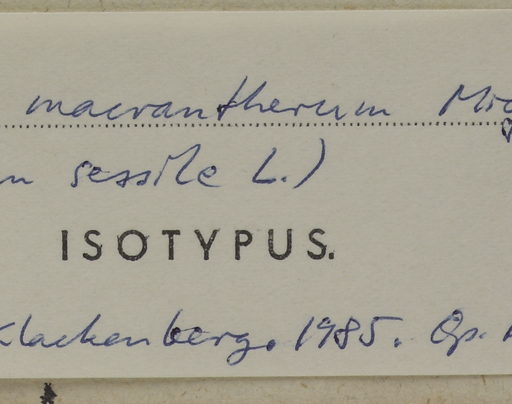 macrantherum
sessile L.)
ISOTYPUS.
Klackenberg. 1985. Op.